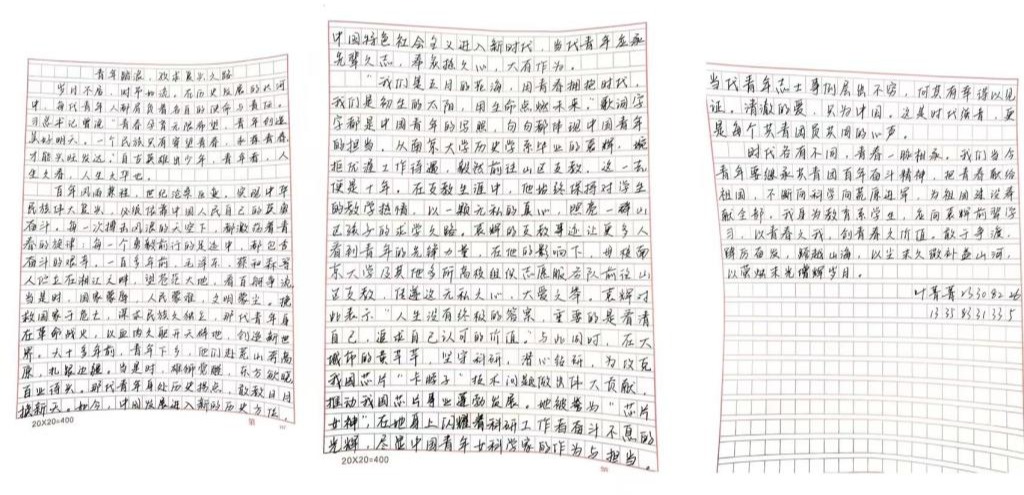 青年踏浪，致求复兴之路
岁月不居，时节如流。在历史发展的长河
中，每代青年人都肩负着各自的使命与责任。
习总书记曾说"青春孕育无限希望，青年创造
美好明天。一个民族只有寄望青春、永葆青春，
才能兴旺发达。"自古英雄出少年，青年者，人
生之春，人生之华也。
百年河山兼程，世纪沧桑巨变，实现中华
民族伟大复兴，必须依靠中国人民自己的英勇
奋斗。每一次搏击风浪的天空下，都激荡着青
春的旋律，每一个勇毅前行的足迹中，都包含
奋斗的艰辛。一百多年前，毛泽东、蔡和森等
人伫立在湘江之畔，望苍茫大地，看百舸争流，
当是时，国家蒙辱，人民蒙难，文明蒙尘。挽
救国家于危亡，谋求民族之独立，那代青年身
在革命战火，以血肉之躯开天辟地，创造新世
界。六十多年前，青年下乡，他们赴荒山有高
原，扎根边疆。当是时，雄狮觉醒，东方欲晓
百业待兴。那代青年身处历史拐点，敢教日月
换新天。如今，中国发展进入新的历史方位，
20X20=400
中国特色社会主义进入新时代，当代青年应承
先辈之志，奉炙热之心，大有作为。
"我们是五月的花海，用青春拥抱时代，
我们是初生的太阳，用生命点燃未来"歌词字
字都是中国青年的写照，句句都体现中国青年
的担当。从南京大学历史学系毕业的袁辉，婉
拒优渥工作待遇，毅然前往山区支教，这一去
便是十年。在支教生涯中，他始终保持对学生
的教学热情，以一颗无私的真心，照亮一群山
区孩子的求学之路，袁辉的支教事迹让更多人
看到青年的先锋力量，在他的影响下，母校南
京大学及其他多所高校组织志愿服务队前往山
区支教，传递这无私之心，大爱之举。袁辉对
此表示"人生没有终极的答案，重要的是看清
自己，追求自己认可的价值。"与此同时，在大
城市的黄芊芊，坚守科研，潜心钻研，为攻克
我国芯片"卡脖子"技术问题做出伟大贡献，
推动我国芯片事业蓬勃发展。她被誉为"芯片
女神"，在她身上闪耀着科研工作者奋斗不息的
光辉，尽显中国青年女科学家的作为与担当。
20X20=400
当代青年志士事例层出不穷，何其有幸得以见
证。清澈的爱，只为中国。这是时代强音，更
是每个共青团员共同的心声。
时代各有不同，青春一脉相承。我们当今
青年要继承共青团百年奋斗精神，把青春献给
祖国，不断向科学向荒原进军，为祖国建设奉
献全部。我身为教育系学生，应向袁辉前辈学
习，以青春之我，创青春之价值。敢于争渡，
踔厉奋发，跨越山海，以尘末之微补益山河，
以萤烛末光增辉岁月。
叶菁菁